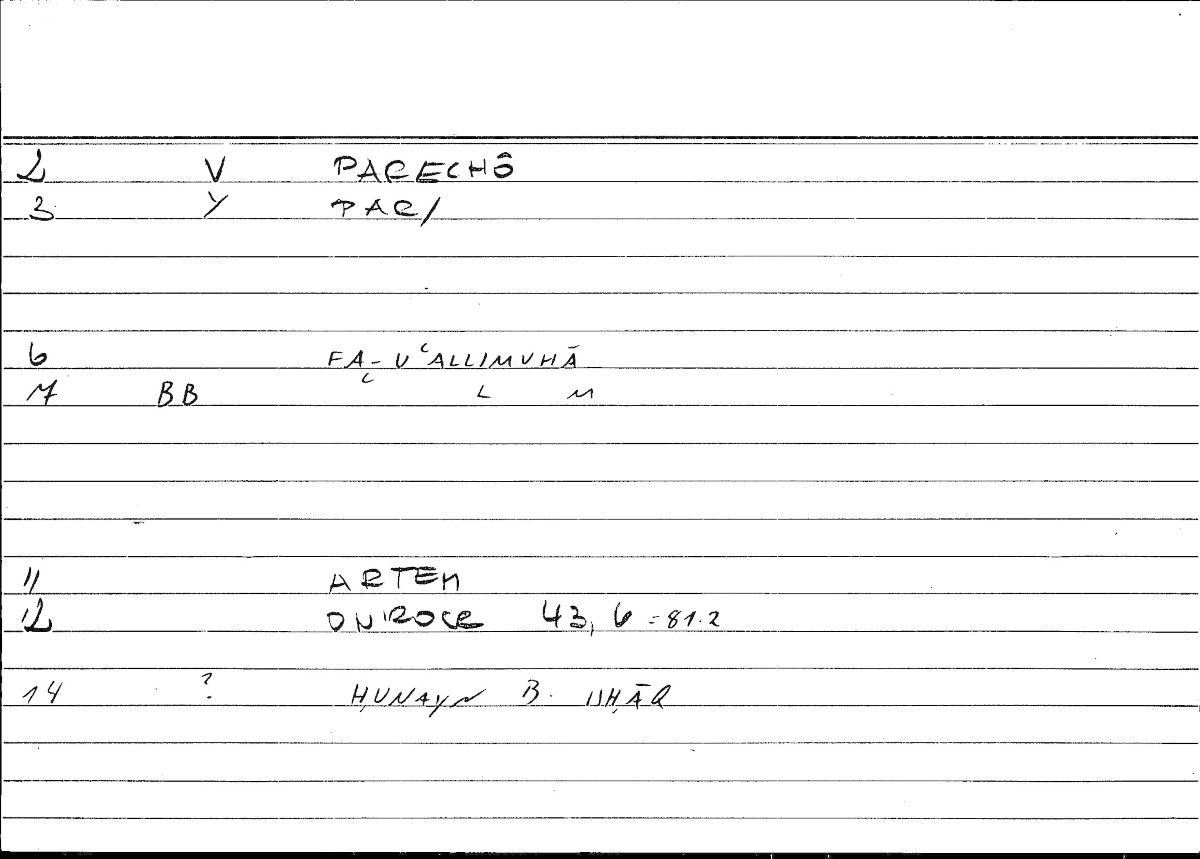 2 V PARECHÔ
3 Y PAR/
6 FA-UʿALLIMUHĀ
7 BB ʿ L M
11 ARTEM
12 ONIROCR 43, 6 = 81.2
14 ? ḤUNAYN B. ISḤĀQ